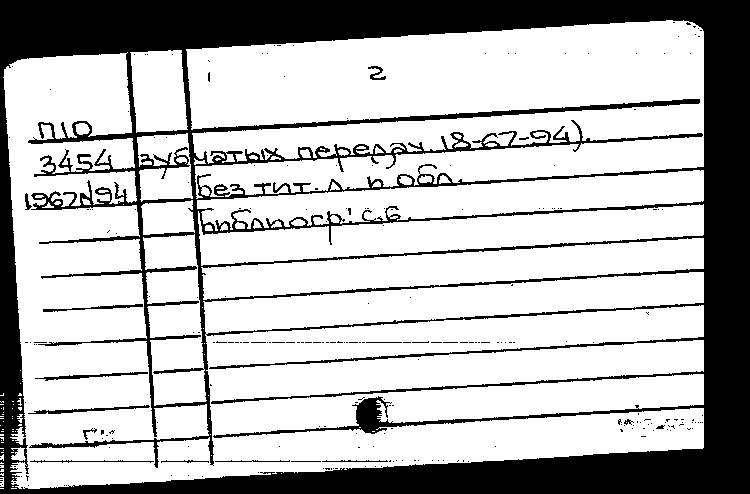 2
П10
3454 зубчатых передач. 18-67-94).
1967N94 Без тит. л. и обл.
Библиогр: с.6.